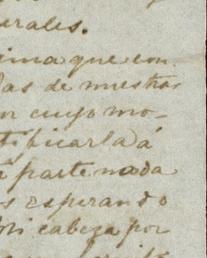 urales.
ima que en
das de nuestras
or cuyo mo-
tificarla á
parte nada
s esperando
mi cabeza por